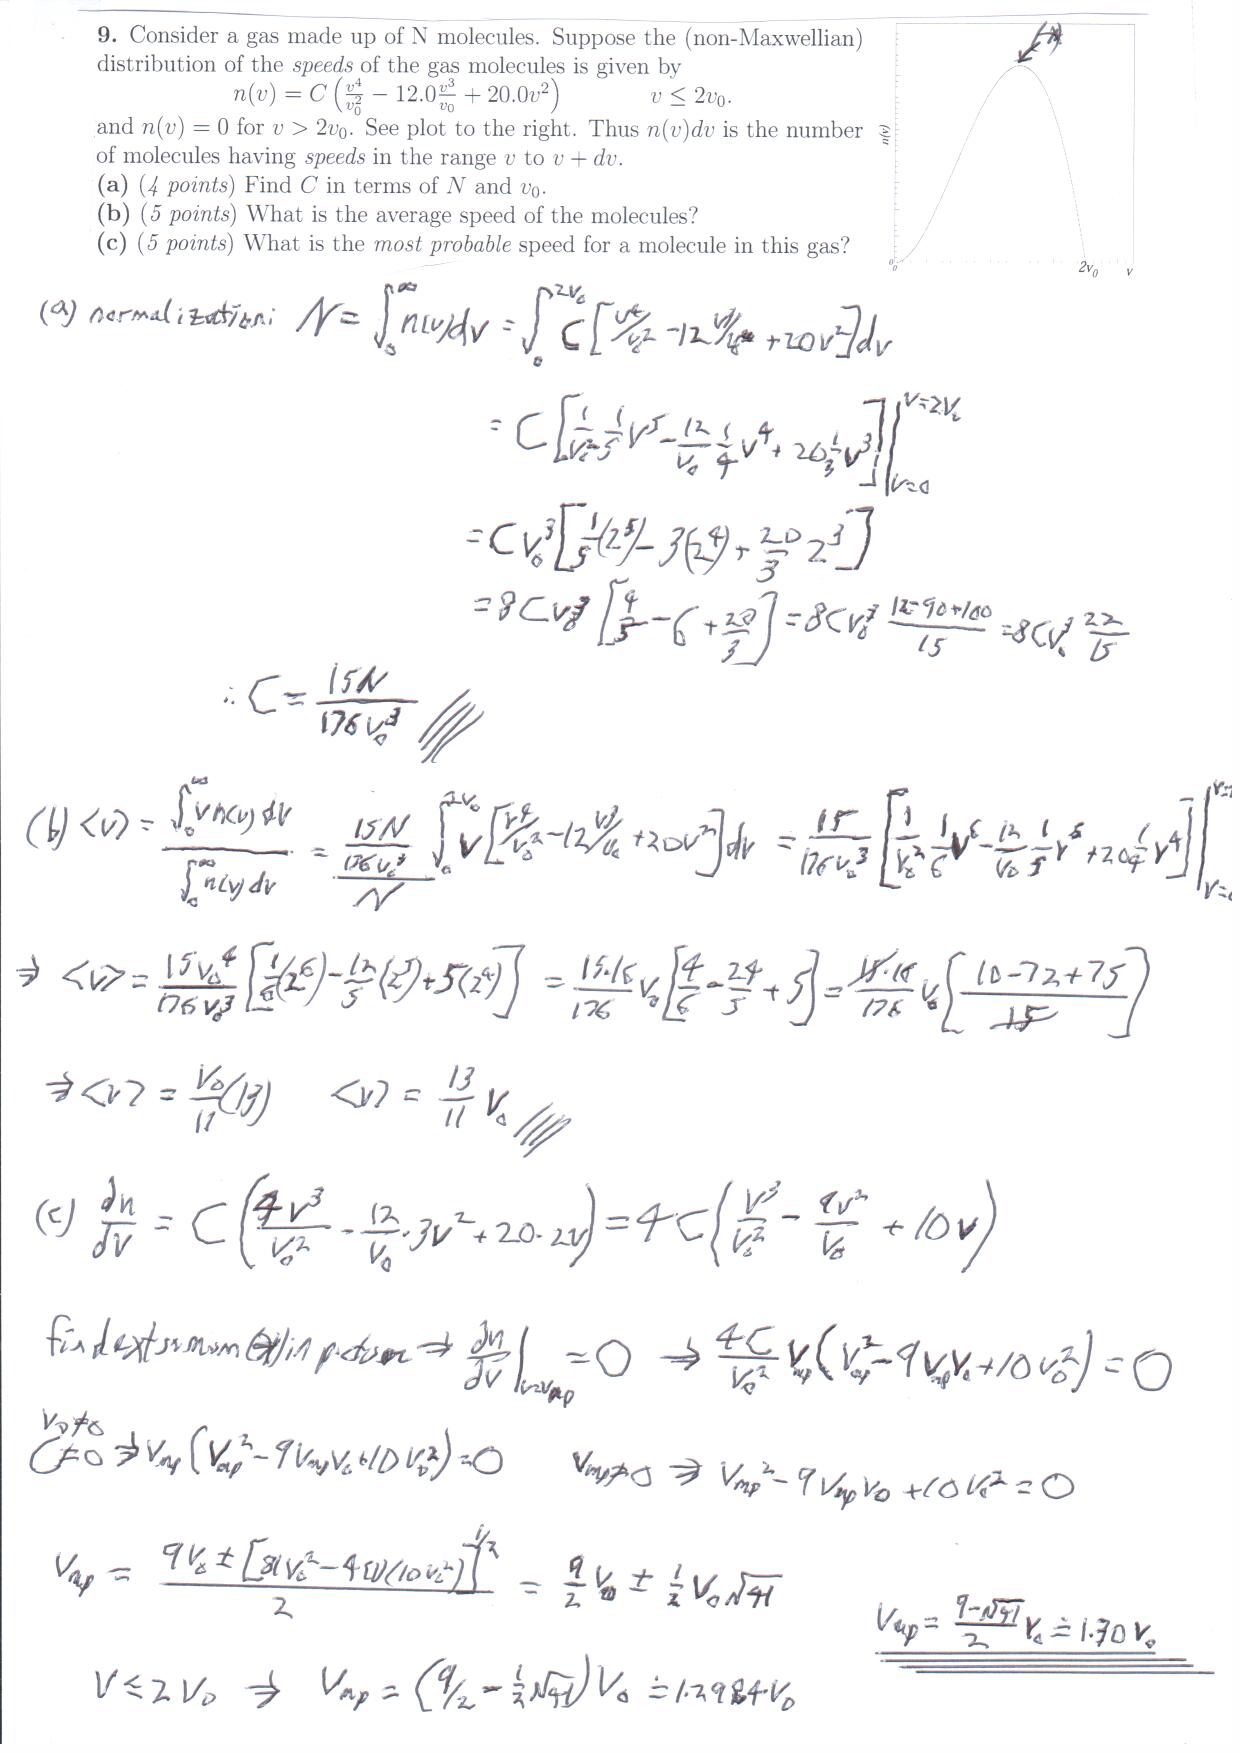 9. Consider a gas made up of N molecules. Suppose the (non-Maxwellian)
distribution of the speeds of the gas molecules is given by
n(v) = C (v⁴/v₀² − 12.0 v³/v₀ + 20.0v²) v ≤ 2v₀.
and n(v) = 0 for v > 2v₀. See plot to the right. Thus n(v)dv is the number
of molecules having speeds in the range v to v + dv.
(a) (4 points) Find C in terms of N and v₀.
(b) (5 points) What is the average speed of the molecules?
(c) (5 points) What is the most probable speed for a molecule in this gas?
n(v)
0
0 2v₀ v
(a) normalization: N = ∫₀^∞ n(v)dv = ∫₀^2v₀ C[v⁴/v₀² − 12 v³/v₀ + 20v²]dv
= C[1/v₀² 1/5 v⁵ − 12/v₀ 1/4 v⁴ + 20 1/3 v³]|v=0^v=2v₀
= C v₀³[1/5(2⁵) − 3(2⁴) + 20/3 2³]
= 8Cv₀³[4/5 − 6 + 20/3] = 8Cv₀³ (12−90+100)/15 = 8Cv₀³ 22/15
∴ C = 15N/176v₀³
(b) <v> = ∫₀^∞ v n(v) dv / ∫₀^∞ n(v) dv = (15N/176v₀³)/N ∫₀^2v₀ v[v⁴/v₀² − 12 v³/v₀ + 20v²]dv = 15/176v₀³ [1/v₀² 1/6 v⁶ − 12/v₀ 1/5 v⁵ + 20 1/4 v⁴]|
⇒ <v> = 15v₀⁴/176v₀³ [1/6(2⁶) − 12/5(2⁵) + 5(2⁴)] = 15·16/176 v₀[4/6 − 24/5 + 5] = 15·16/176 v₀[(10−72+75)/15]
⇒ <v> = v₀/11 (13) <v> = 13/11 v₀
(c) dn/dv = C(4v³/v₀² − 12/v₀·3v² + 20·2v) = 4C(v³/v₀² − 9v²/v₀ + 10v)
find extremum (*) in picture ⇒ dn/dv|v=vmp = 0 ⇒ 4C/v₀² vmp(vmp² − 9vmpv₀ + 10v₀²) = 0
v₀≠0
C≠0 ⇒ vmp(vmp² − 9vmpv₀ + 10v₀²) = 0 vmp≠0 ⇒ vmp² − 9vmpv₀ + 10v₀² = 0
vmp = (9v₀ ± [81v₀² − 4(1)(10v₀²)]^1/2)/2 = 9/2 v₀ ± 1/2 v₀√41
vmp = (9−√41)/2 v₀ ≐ 1.30v₀
v ≤ 2v₀ ⇒ vmp = (9/2 − 1/2√41)v₀ ≐ 1.2984v₀